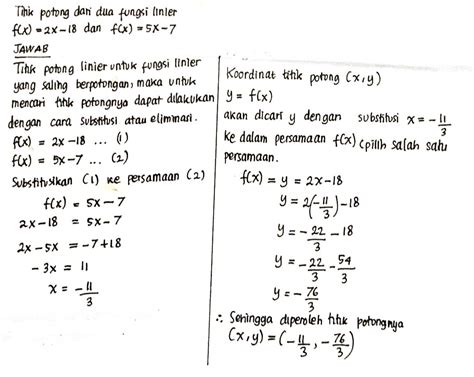 Titik potong dari dua fungsi linier
f(x) = 2x-18 dan f(x) = 5x-7
JAWAB
Titik potong linier untuk fungsi linier
yang saling berpotongan, maka untuk
mencari titik potongnya dapat dilakukan
dengan cara substitusi atau eliminasi.
f(x) = 2x-18 ... (1)
f(x) = 5x-7 ... (2)
Substitusikan (1) ke persamaan (2)
f(x) = 5x-7
2x-18 = 5x-7
2x-5x = -7+18
-3x = 11
x = -11/3
Koordinat titik potong (x,y)
y = f(x)
akan dicari y dengan substitusi x = -11/3
ke dalam persamaan f(x) (pilih salah satu
persamaan.
f(x) = y = 2x-18
y = 2(-11/3)-18
y = -22/3 - 18
y = -22/3 - 54/3
y = -76/3
∴ Sehingga diperoleh titik potongnya
(x,y) = (-11/3, -76/3)